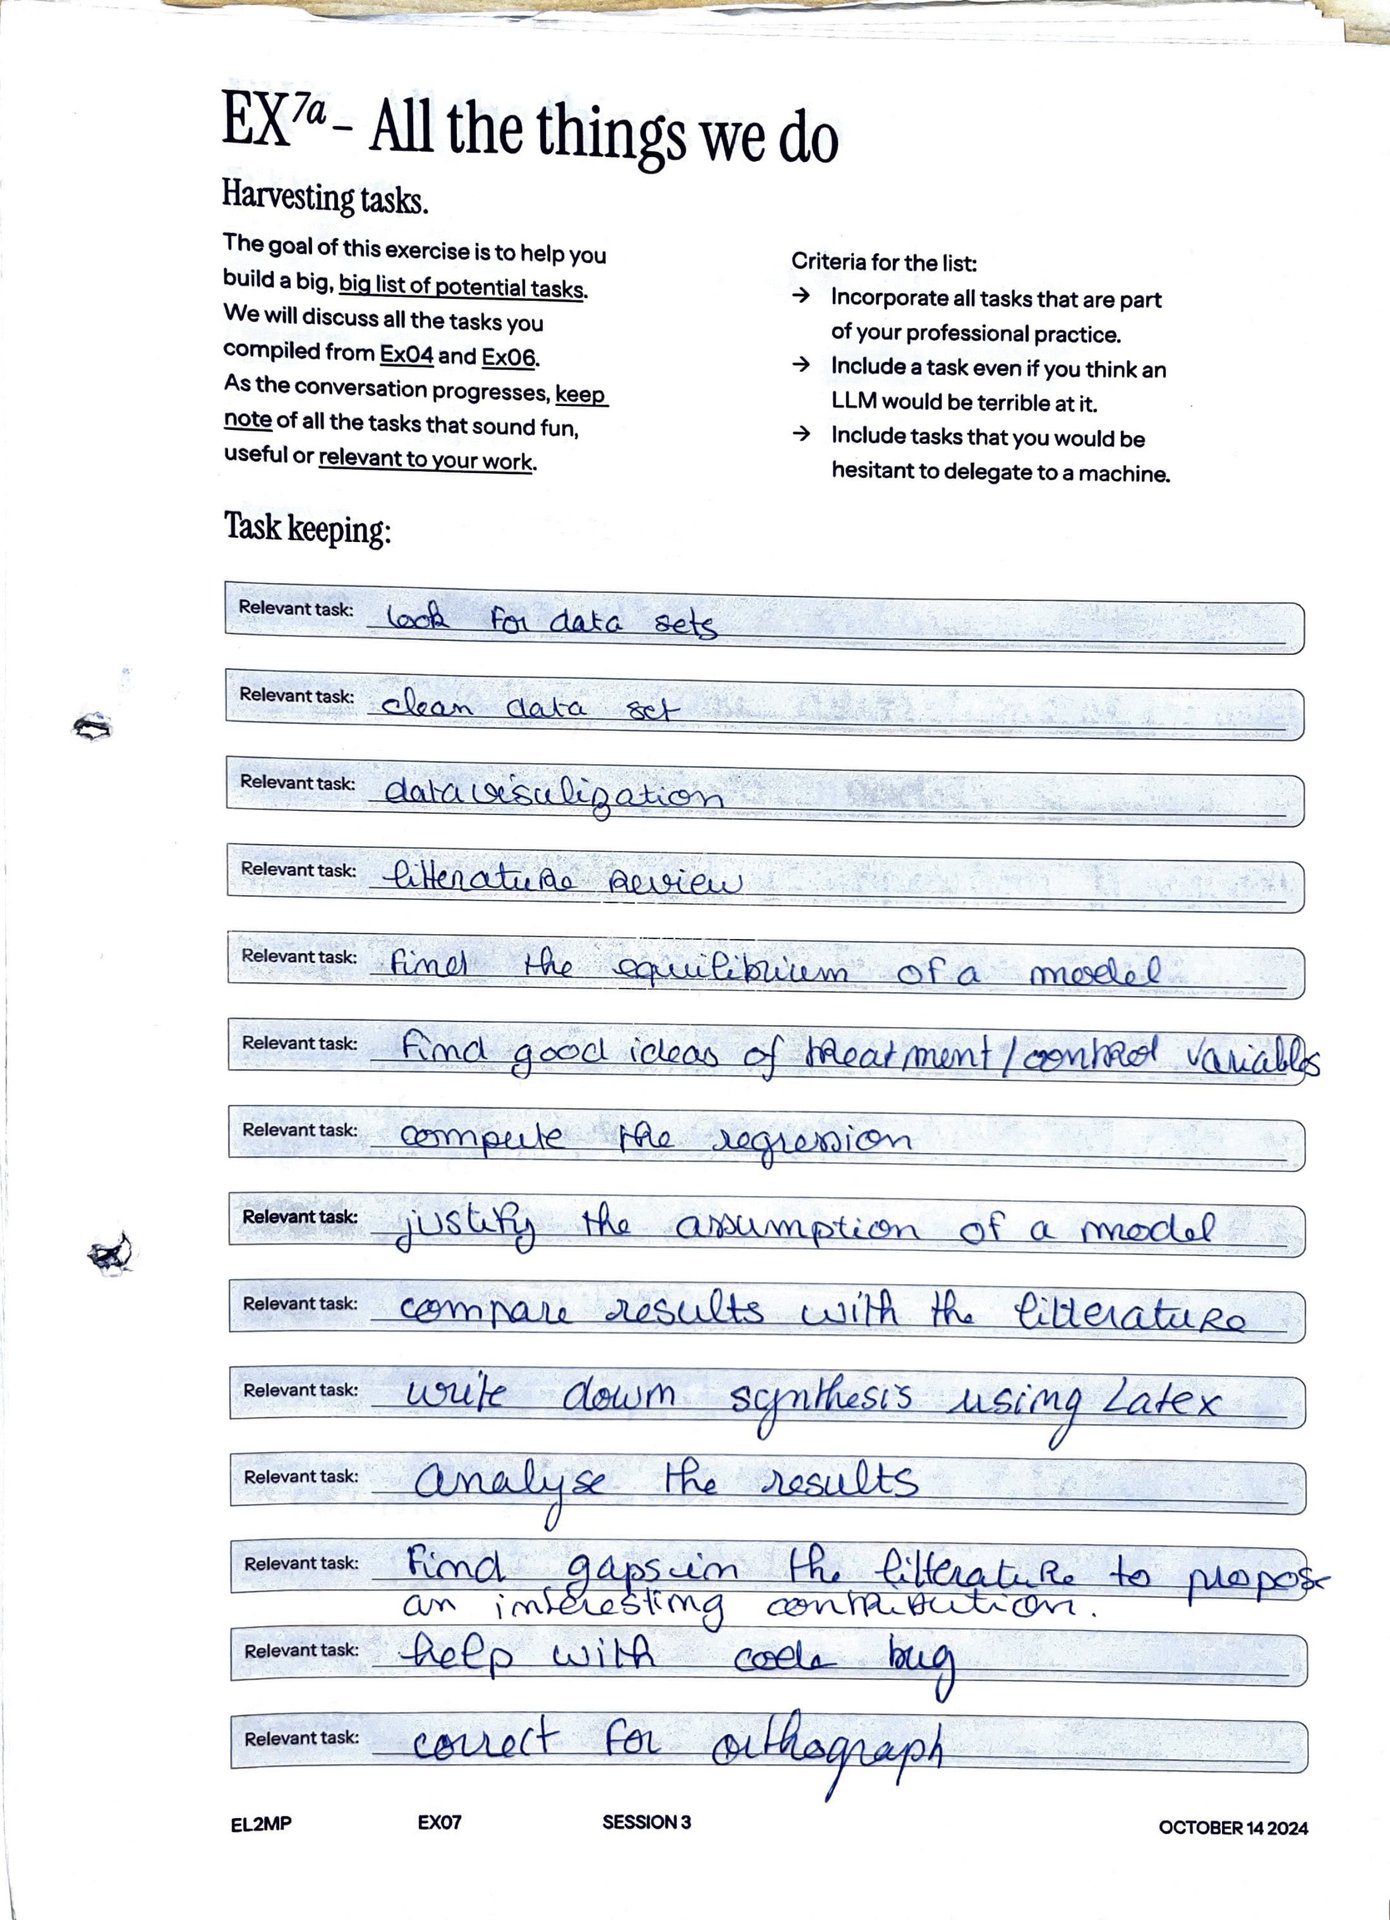 EX7a - All the things we do
Harvesting tasks.
The goal of this exercise is to help you
build a big, big list of potential tasks.
We will discuss all the tasks you
compiled from Ex04 and Ex06.
As the conversation progresses, keep
note of all the tasks that sound fun,
useful or relevant to your work.
Criteria for the list:
→ Incorporate all tasks that are part
of your professional practice.
→ Include a task even if you think an
LLM would be terrible at it.
→ Include tasks that you would be
hesitant to delegate to a machine.
Task keeping:
Relevant task: look for data sets
Relevant task: clean data set
Relevant task: datavisulization
Relevant task: litterature review
Relevant task: find the equilibrium of a model
Relevant task: find good ideas of treatment/control variables
Relevant task: compute the regression
Relevant task: justify the assumption of a model
Relevant task: compare results with the litterature
Relevant task: write down synthesis using Latex
Relevant task: analyse the results
Relevant task: find gaps in the litterature to propose
an interesting contribution.
Relevant task: help with code bug
Relevant task: correct for orthograph
EL2MP EX07 SESSION 3 OCTOBER 14 2024